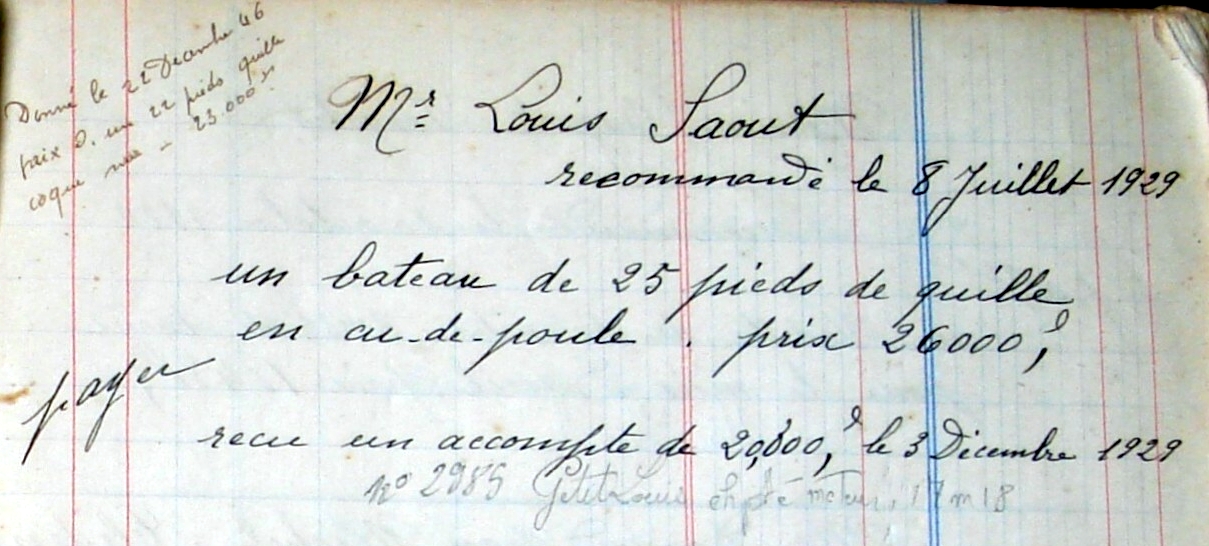 Donné le 22 Décembre 46
prix d. un 22 pieds quille
coque nue - 23.000 fr
Mr Louis Saout
recommandé le 8 Juillet 1929
un bateau de 25 pieds de quille
en cu-de-poule. prix 26000,
payer
recu un accompte de 20,000, le 3 Décembre 1929
No 2985 Petit Louis moteur 17m18